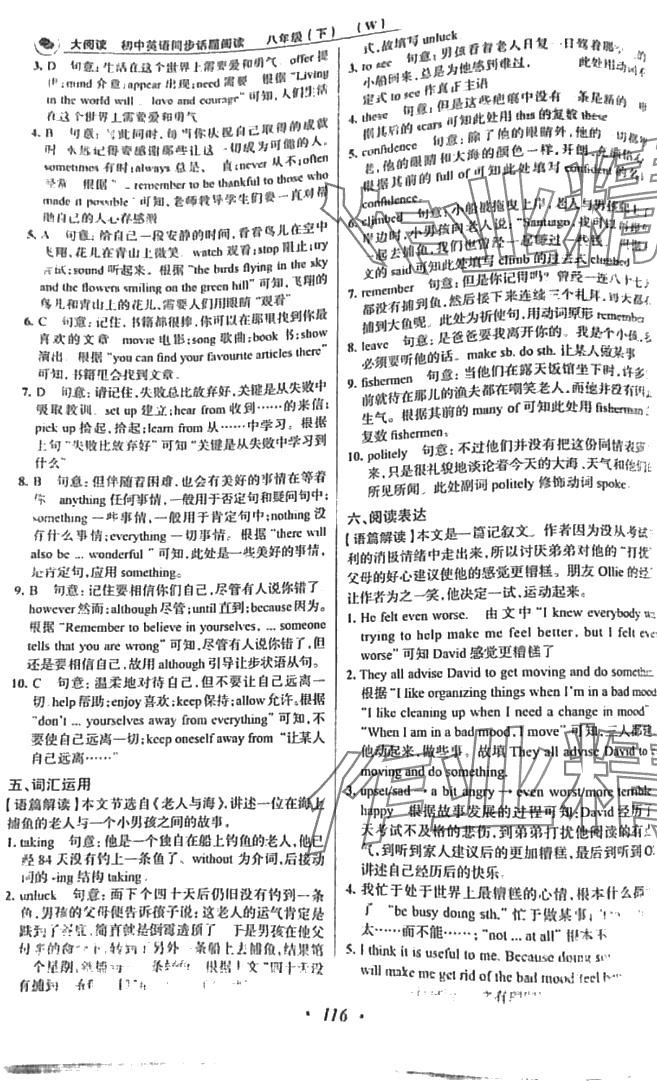 大阅读 初中英语同步话题阅读 八年级（下） （W）
3. D 句意：生活在这个世界上需要爱和勇气。offer 提
供;mind 介意;appear 出现;need 需要。根据“Living
in the world will ... love and courage”可知，生活在
在这个世界上需要爱和勇气
4. B 句意：与此同时，每当你从祝自己取得的成就
时，永远记得要感谢那些让这一切成为可能的人。
sometimes 有时;always 总是、 直;never 从不;often
经常 根据“... remember to be thankful to those who
made it possible”可知，老师教导学生们要一
助自己的人心存感激
5. A 句意：给自己一段安静的时间，看看鸟儿在空中
飞翔，花儿在青山上微笑 watch 观看;stop 阻止;try
尝试;sound 听起来。根据“the birds flying in the sky
and the flowers smiling on the green hill”可知，飞翔的
鸟儿和青山上的花儿，需要人们用眼睛“观看”
6. C 句意：记住，书籍都很棒，你可以找到你最
喜欢的文章 movie 电影;song 歌曲;book 书;show
演出 根据“you can find your favourite articles there”
可知，书籍里会找到文章。
7. D 句意：请记住，失败总比放弃好，关键是从失败中
吸取教训。set up 建立;hear from 收到……的来信;
pick up 拾起，捡起;learn from 从……中学习。根据
上句“失败比放弃好”可知“关键是从失败中学习到
什么”
8. B 句意：但伴随着困难，也会有美好的事情在等着
你 anything 任何事情，一般用于否定句和疑问句中;
something 一些事情，一般用于肯定句中;nothing 没
有什么事情;everything 一切事情。根据“there will
also be ... wonderful”可知，此处是一些美好的事情，
肯定句，应用 something。
9. B 句意：记住要相信你们自己，尽管有人说你错了
however 然而;although 尽管;until 直到;because 因为。
根据“Remember to believe in yourselves, ... someone
tells that you are wrong”可知，尽管有人说你错了，但
还是要相信自己，故用 although 引导让步状语从句。
10. C 句意：温柔地对待自己，但不要让自己远离一
切 help 帮助;enjoy 喜欢;keep 保持;allow 允许。根据
“don't ... yourselves away from everything”可知，不要
让自己远离一切;keep oneself away from“让某人
自己远离……”
五、词汇运用
【语篇解读】本文节选自《老人与海》，讲述一位在海上
捕鱼的老人与一个小男孩之间的故事。
1. taking 句意：他是一个独自在船上钓鱼的老人，他已
经 84 天没有钓上一条鱼了、without 为介词，后接动
词的 -ing 结构 taking.
2. unluck 句意：而下个四十天后仍旧没有钓到一条
鱼，男孩的父母便告诉孩子说：这老人的运气肯定是
跌到了谷底，简直就是倒霉透顶了 于是男孩在父
母的 转到了另外一条船上去捕鱼，结果第
一个星期， 根据上文“四十天没
有捕到
式，故填写 unluck
3. to see 句意：男孩看着老人
小船回来，总是为他感到难过， 此处用动词
定式 to see 作真正主语
4. these 句意：但是这些疤痕中没有 条是新的
据其后的 scars 可知此处用 this 的复数 these
5. confidence 句意：除了他的眼睛外，他
老，他的眼睛和大海的颜色一样，开朗
根据其前的 full of 可知此处填写 confident 的名
confidence.
6. climbed 句意：小船被拖拽上岸，老人与男孩
岸边时，小男孩问老人说：“Santiago，
一起去捕鱼，我们也曾经一起
文的 said 可知此处填写 climb 的过去式 climbed
7. remember 句意：但是你记得吗？曾经一连八十七
都没有捕到鱼，然后接下来连续三个礼拜，每天都
捕到大鱼呢。此处为祈使句，用动词原形 remember
8. leave 句意：是爸爸要我离开你的。我是个小孩，
必须要听他的话。make sb. do sth. 让某人做某事
9. fishermen 句意：当他们在露天饭馆坐下时，许多
前就待在那儿的渔夫都在嘲笑老人，而他却
生气。根据其前的 many of 可知此处用 fisherman
复数 fishermen.
10. politely 句意：不过他们并没有把这份同情表
来，只是很礼貌地谈论着今天的大海，天气和他们
所见所闻。此处副词 politely 修饰动词 spoke
六、阅读表达
【语篇解读】本文是一篇记叙文。作者因为没从考试
利的消极情绪中走出来，所以讨厌弟弟对他的“打扰
父母的好心建议使他的感觉更糟糕。朋友 Ollie 的经
让作者为之一笑，他决定一试，运动起来。
1. He felt even worse. 由文中“I knew everybody w
trying to help make me feel better, but I felt ev
worse”可知 David 感觉更糟糕了
2. They all advise David to get moving and do somethin
根据“I like organizing things when I'm in a bad mood
“I like cleaning up when I need a change in mood”
“When I am in a bad mood, I move”可知，三人都建
他动起来，做些事。故填 They all advise David to
moving and do something.
3. upset/sad → a bit angry → even worse/more terrible
happy 根据故事发展的过程可知，David 经历了
天考试不及格的悲伤，到弟弟打扰后的更加糟糕
到听到家人建议后的更加糟糕，最后到听到 O
讲述自己经历后的快乐。
4. 我忙于处于世界上最糟糕的心情，根本什么都
了 “be busy doing sth.”忙于做某事;
太……而不能……;“not ... at all”根本不
5. I think it is useful to me. Because doing som
will make me get rid of the bad mood feel better
· 116 ·